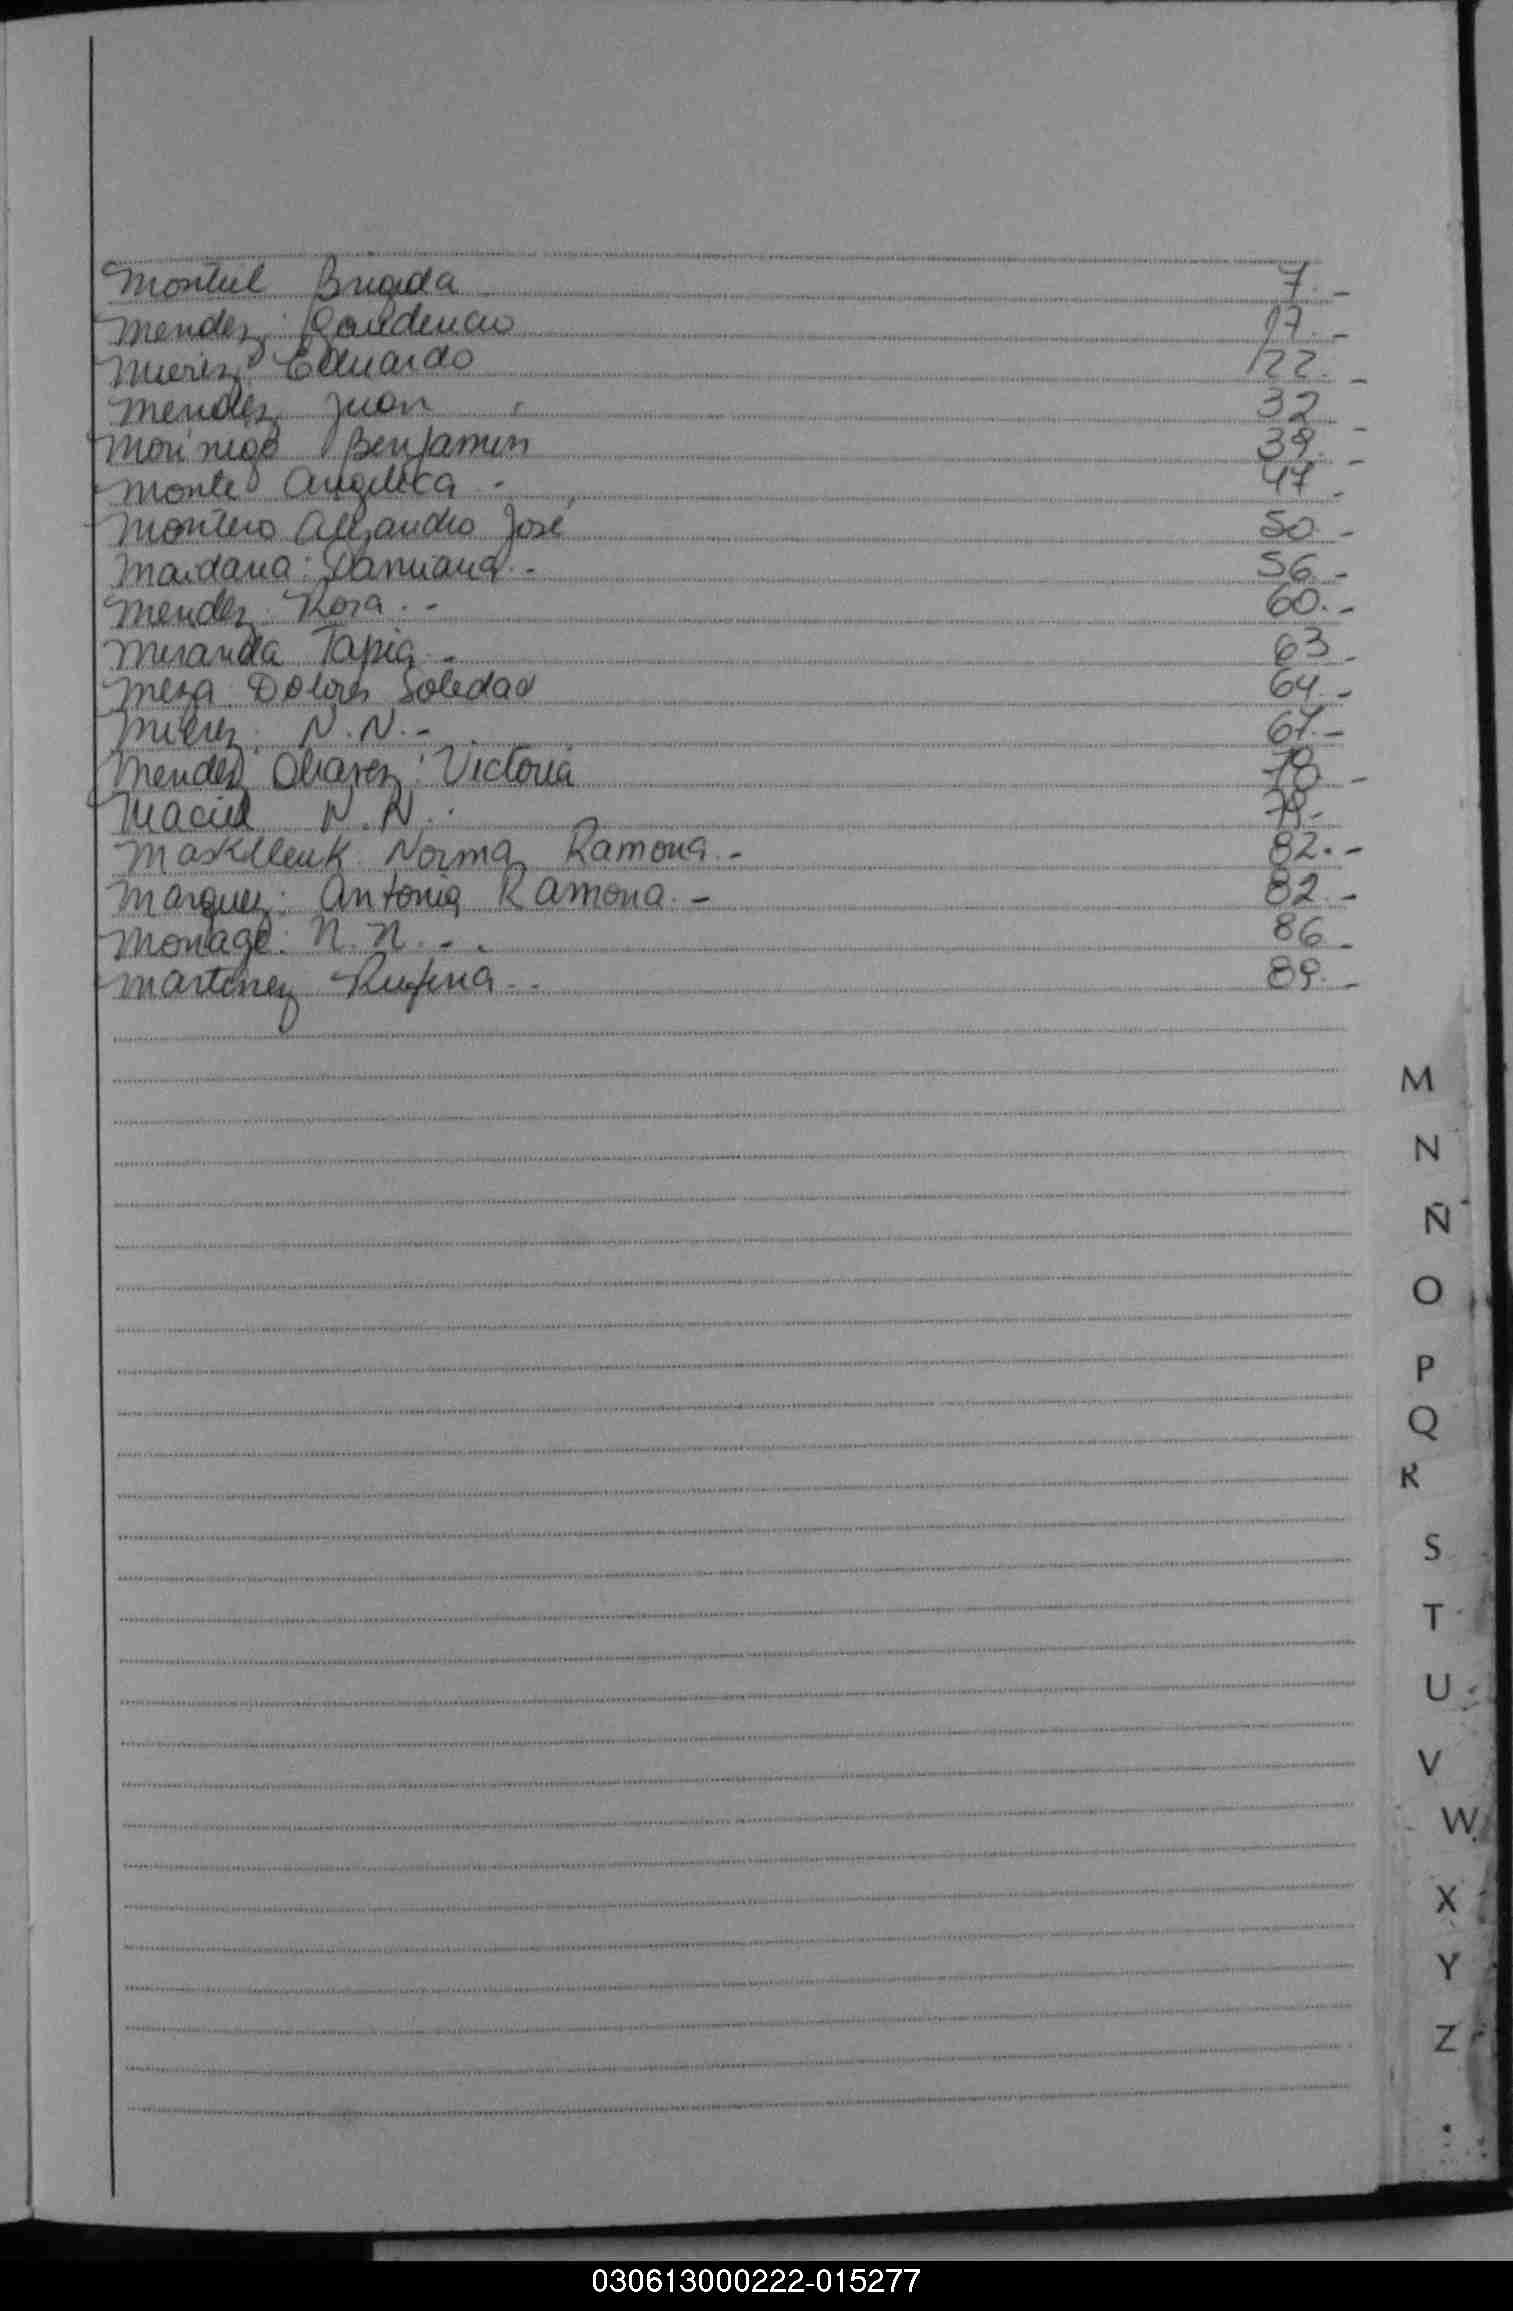 Montiel Brigida 7.-
Mendez: Gaudencio 17.-
Mierez Eduardo 22.-
Mendez Juan 32.-
Morinigo Benjamin 39.-
Monte Angelica - 47.-
Montero Alejandro José 50.-
Maidana: Damiana.- 56.-
Mendez: Rosa.- 60.-
Miranda Tapia.- 63.-
Meza Dolores Soledad 64.-
Mierez: N.N.- 67.-
Mendez Olivarez: Victoria 78.-
Maciel N.N. 79.-
Maskllenk Norma Ramona.- 82.-
Marquez: Antonia Ramona.- 82.-
Monage: N.N.- 86.-
Martinez Rufina.- 89.-
M
N
Ñ
O
P
Q
R
S
T
U
V
W
X
Y
Z
030613000222-015277